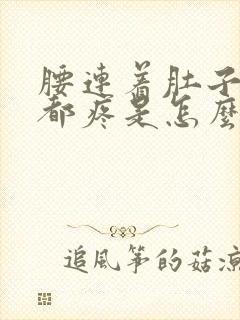 腰連着肚子
都疼是怎麼
追風筝的菇涼